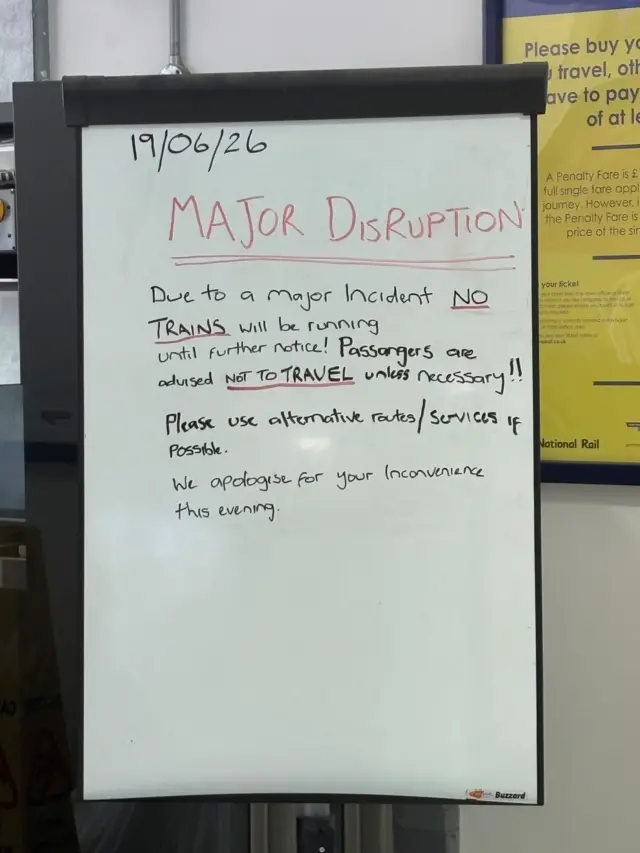 19/06/26
MAJOR DISRUPTION
Due to a major Incident NO
TRAINS will be running
until further notice! Passangers are
advised NOT TO TRAVEL unless necessary!!
Please use alternative routes/services if
possible.
We apologise for your Inconvenience
this evening.
Buzzard
Please buy
travel,
to pay
of at
A Penalty Fare is £
full single fare
journey. However,
the Penalty Fare is
price of the
your ticket
National Rail